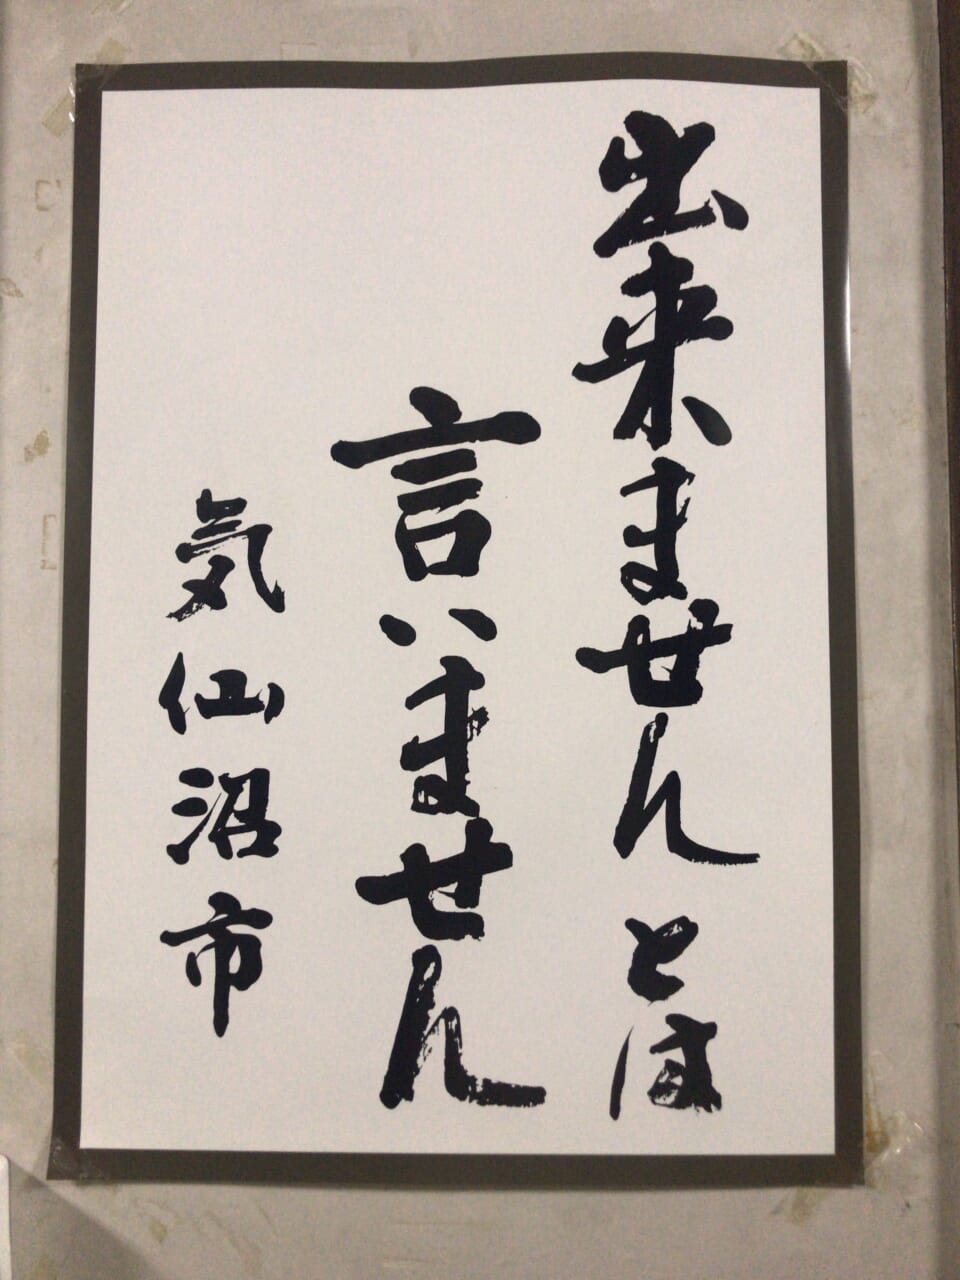 出来ませんとは
言いません
気仙沼市